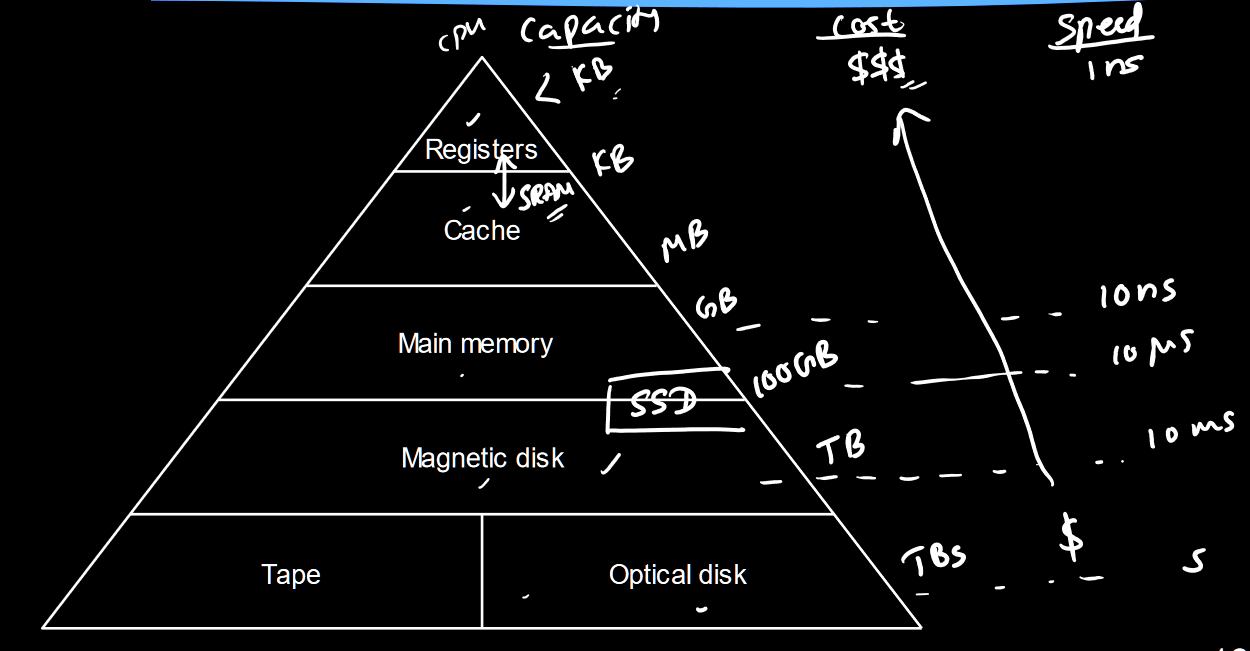 cpu Capacity Cost Speed
< KB $$$ 1ns
Registers KB
SRAM
Cache MB
GB 10ns
Main memory 100GB 10 μs
SSD
Magnetic disk TB 10 ms
$
Tape Optical disk TBs s